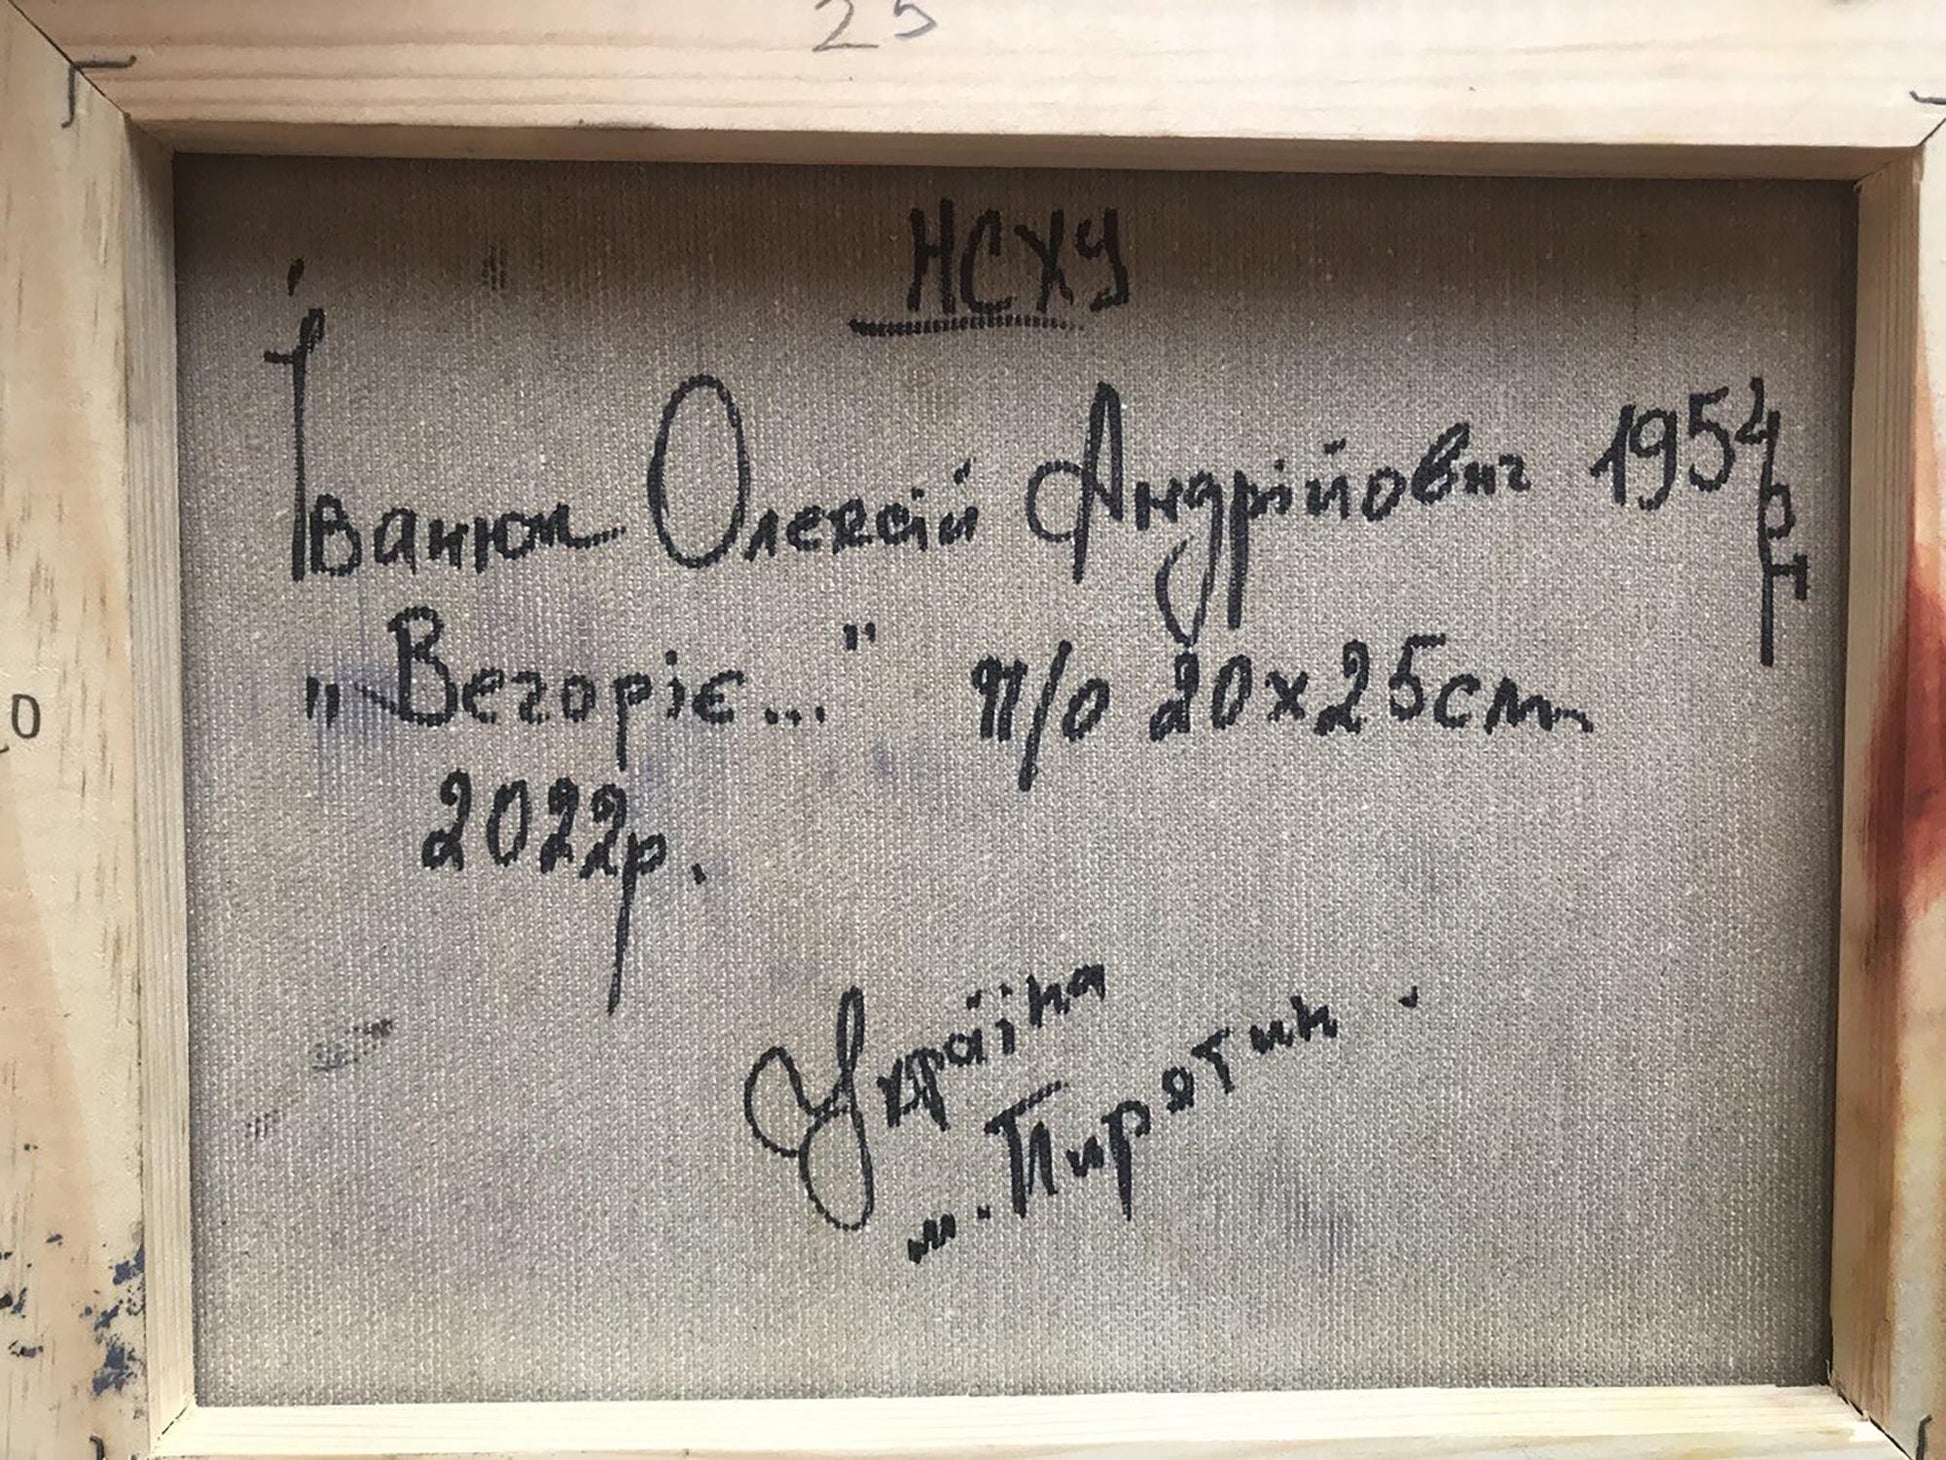 25
НСХУ
Іванюк Олексій Андрійович 1954 р.н
„Вегоріє..." п/о 20х25см
2022р.
Україна
м. Пирятин.
0